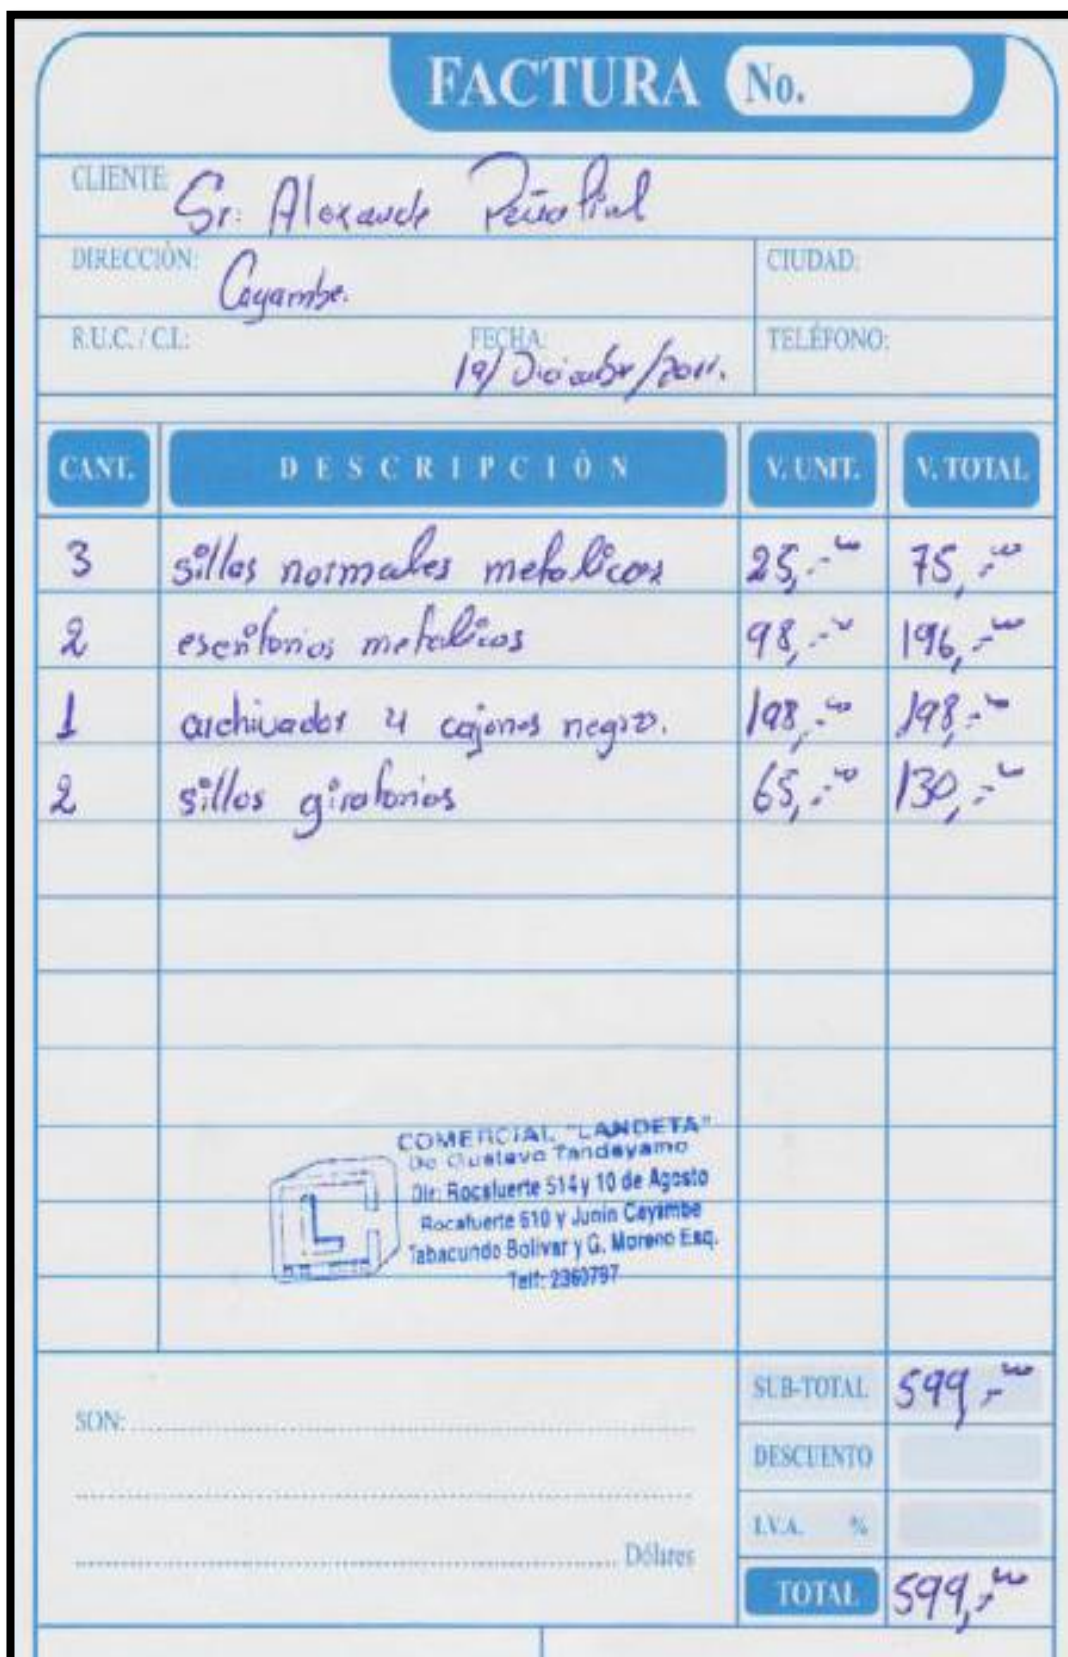 FACTURA No.
CLIENTE: Sr. Alexande Peñafiel
DIRECCIÓN: Cayambe. CIUDAD:
R.U.C. / C.I.: FECHA: 19/Diciembr/2011. TELÉFONO:
CANT. DESCRIPCIÓN V. UNIT. V. TOTAL
3 sillas normales metalicas 25,-00 75,-00
2 escritorios metalicos 98,-00 196,-00
1 archivador 4 cajones negro. 198,-00 198,-00
2 sillas giratorias 65,-00 130,-00
COMERCIAL "LANDETA"
De Gustavo Tandayamo
Dir: Rocafuerte 514 y 10 de Agosto
Rocafuerte 610 y Junin Cayambe
Tabacundo Bolivar y G. Moreno Esq.
Telf: 2360797
L
SUB-TOTAL 599,-00
SON:
DESCUENTO
I.V.A. %
Dólares
TOTAL 599,-00